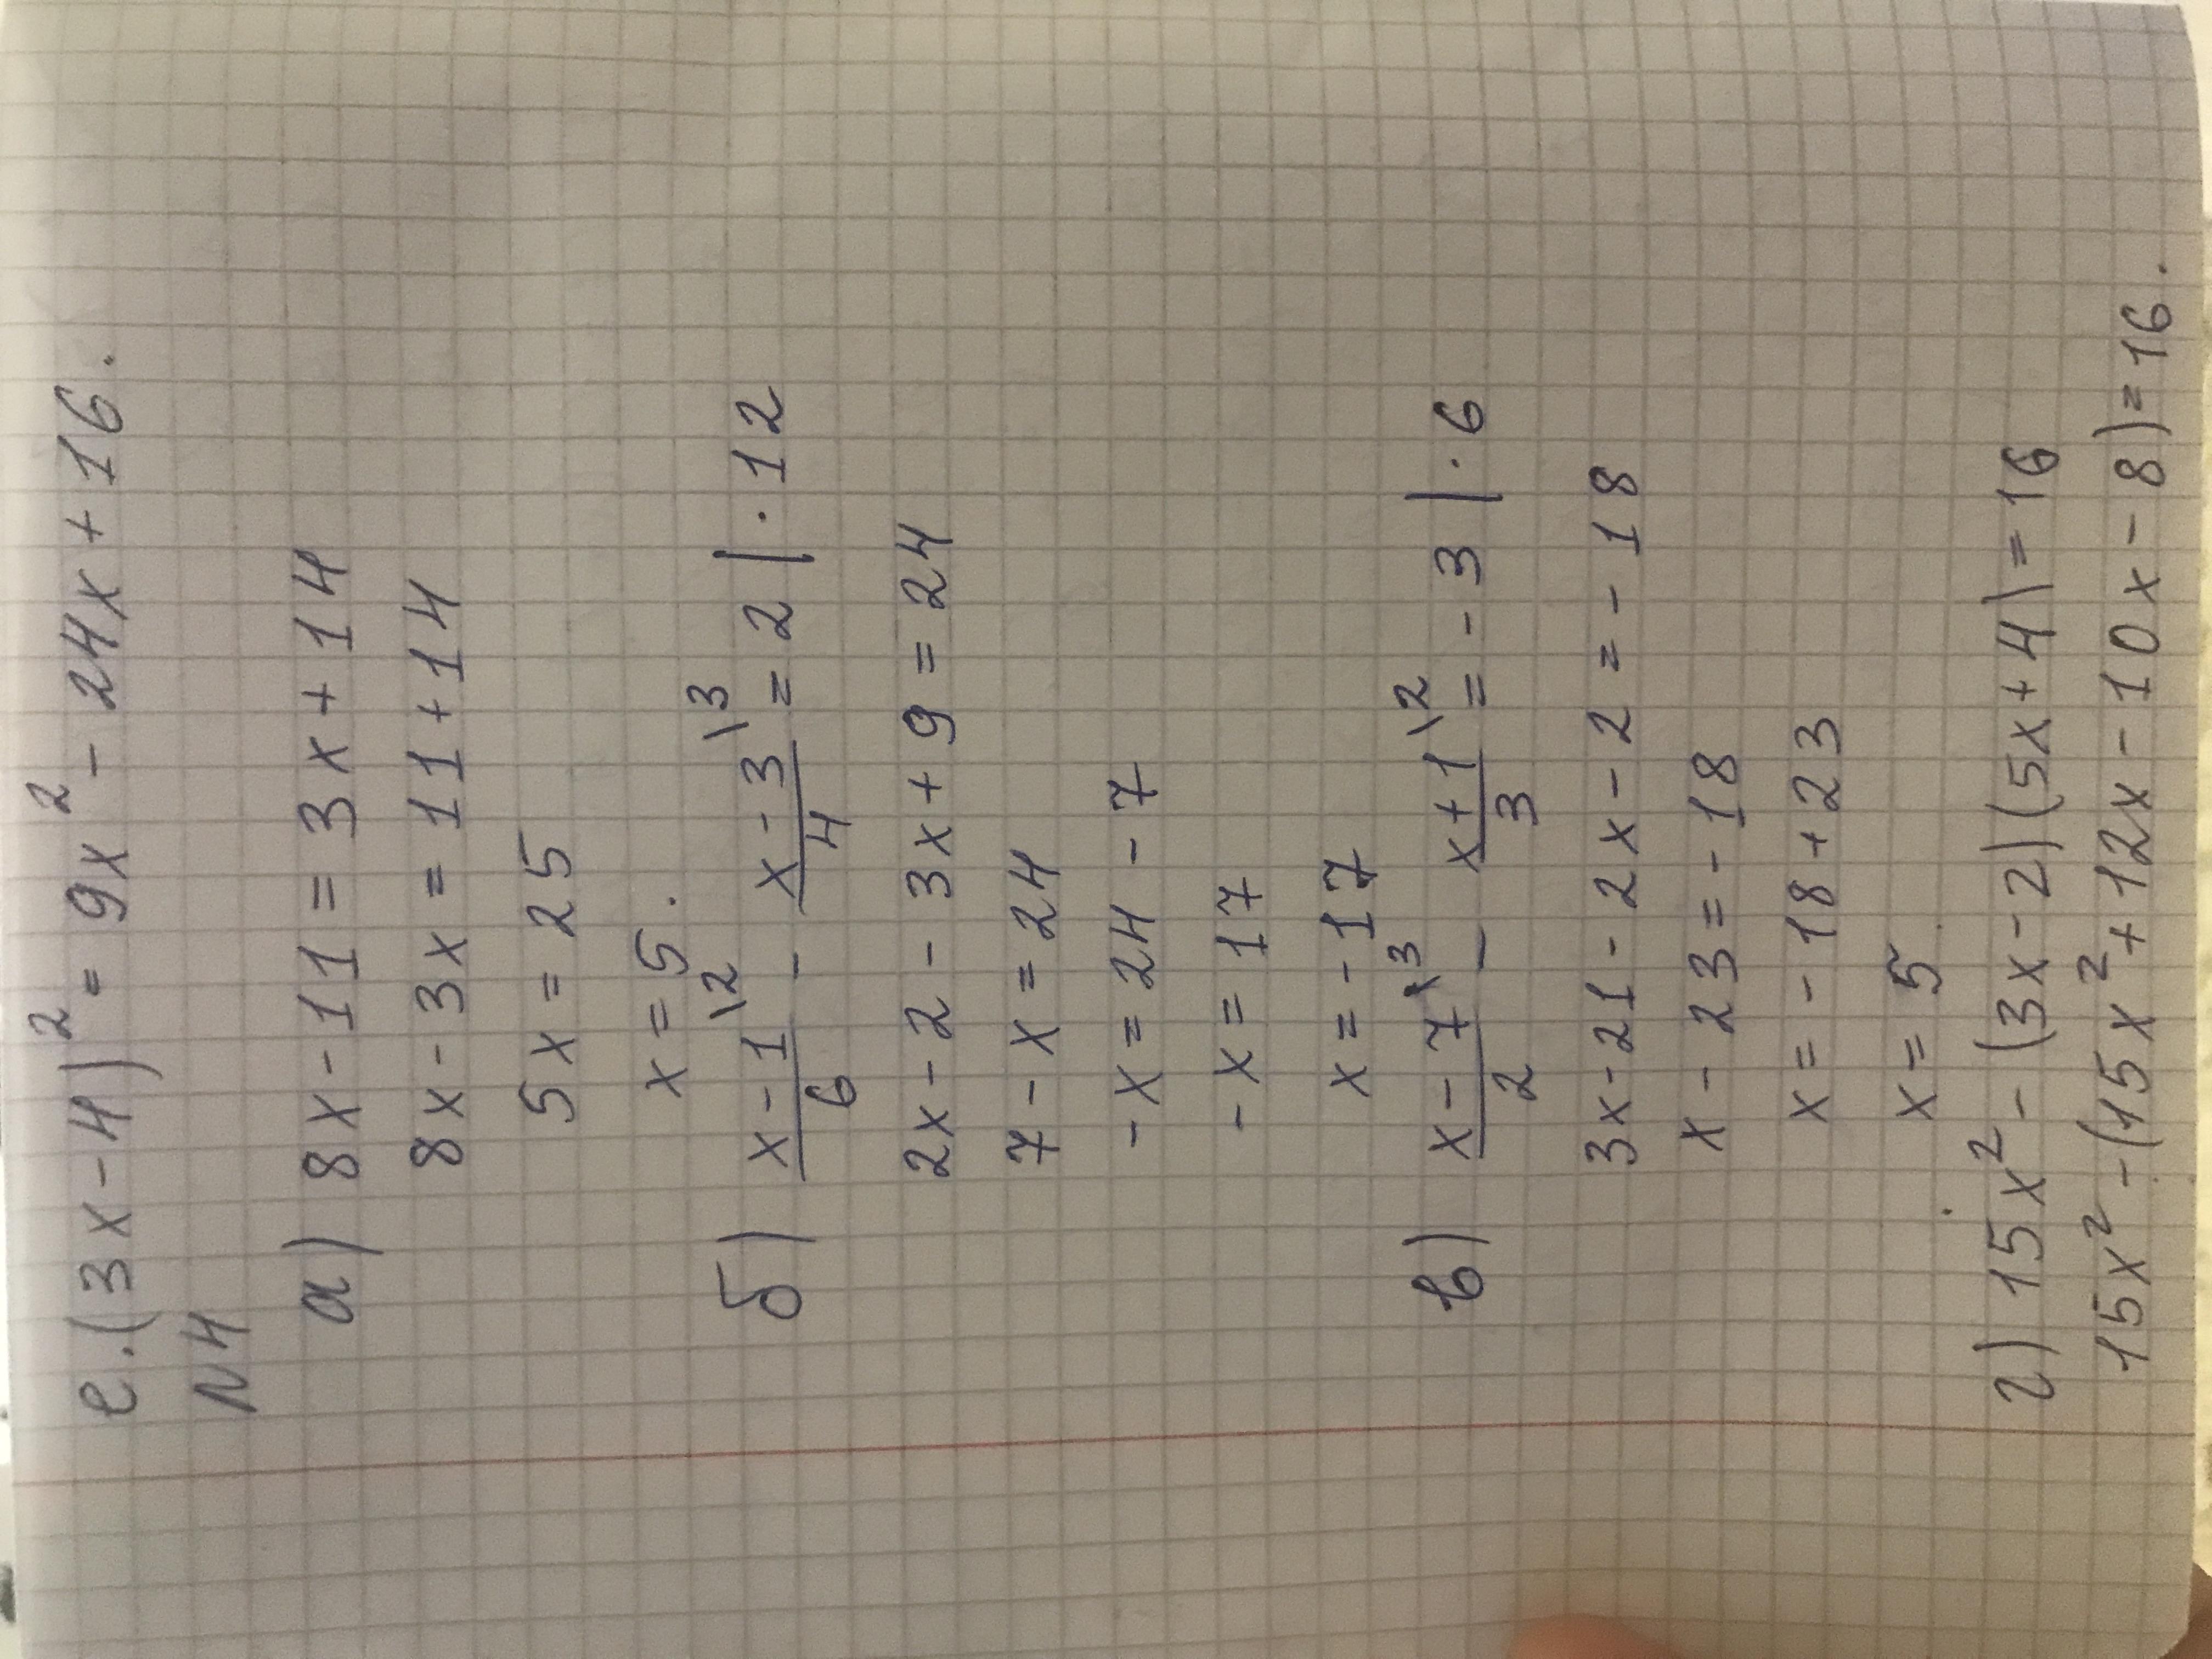 е. (3x-4)² = 9x² - 24x + 16.
N4
а) 8x - 11 = 3x + 14
8x - 3x = 11 + 14
5x = 25
x = 5.
б) (x-1)/6 \2 - (x-3)/4 \3 = 2 | · 12
2x - 2 - 3x + 9 = 24
7 - x = 24
-x = 24 - 7
-x = 17
x = -17
в) (x-7)/2 \3 - (x+1)/3 \2 = -3 | · 6
3x - 21 - 2x - 2 = -18
x - 23 = -18
x = -18 + 23
x = 5.
г) 15x² - (3x-2)(5x+4) = 16
15x² - (15x² + 12x - 10x - 8) = 16.